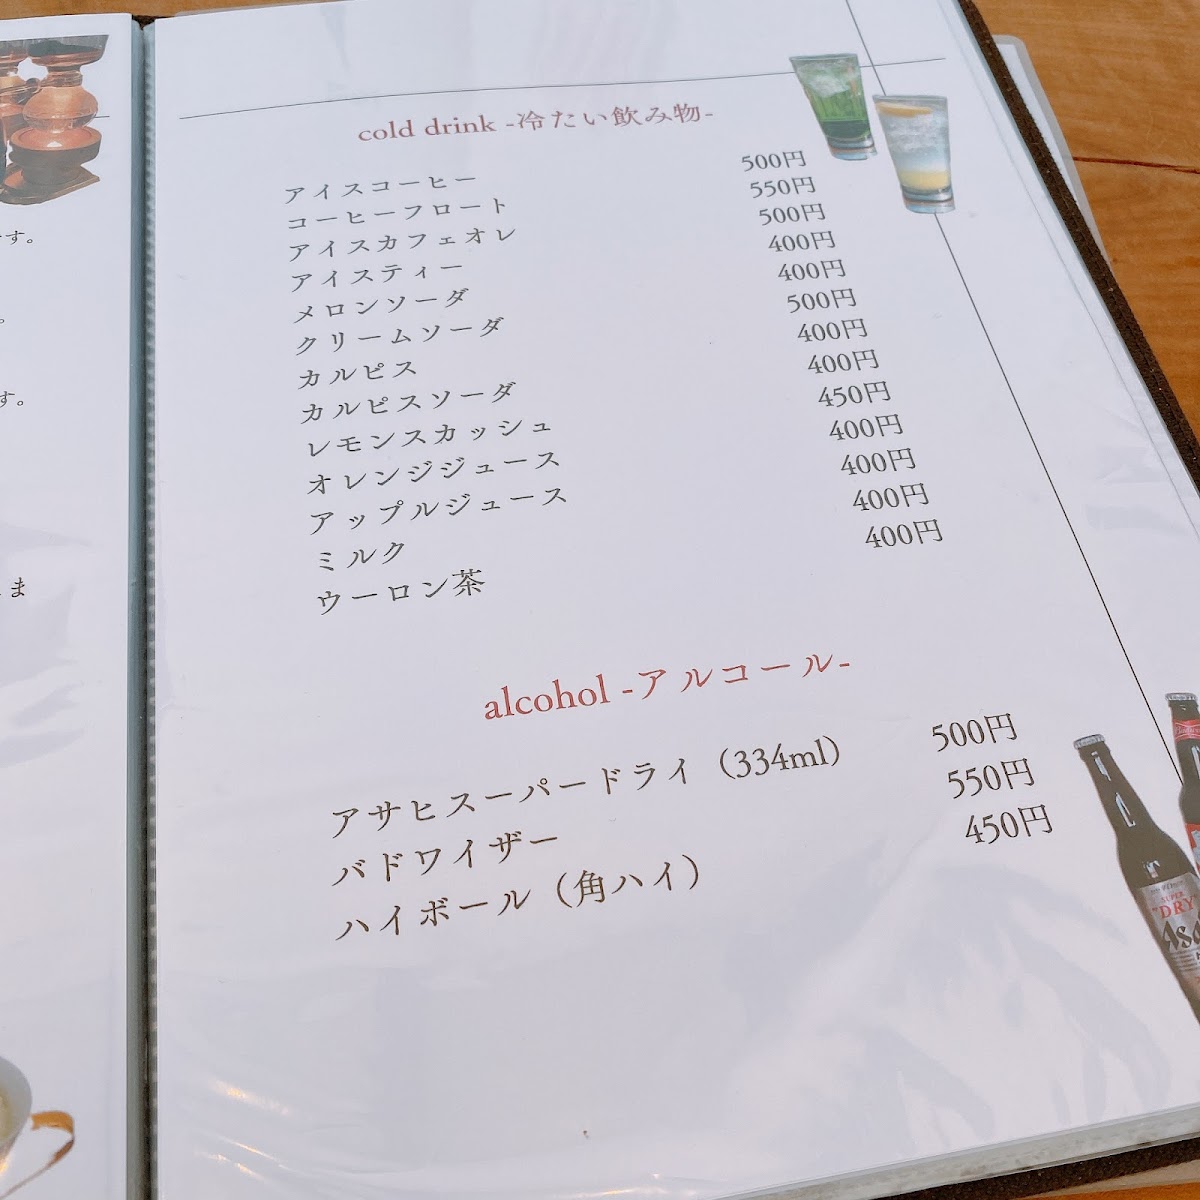 cold drink -冷たい飲み物-
アイスコーヒー 500円
コーヒーフロート 550円
アイスカフェオレ 500円
アイスティー 400円
メロンソーダ 400円
クリームソーダ 500円
カルピス 400円
カルピスソーダ 400円
レモンスカッシュ 450円
オレンジジュース 400円
アップルジュース 400円
ミルク 400円
ウーロン茶 400円
alcohol -アルコール-
アサヒスーパードライ（334ml） 500円
バドワイザー 550円
ハイボール（角ハイ） 450円
す。
す。
ま
SUPER
"DRY"
Asa